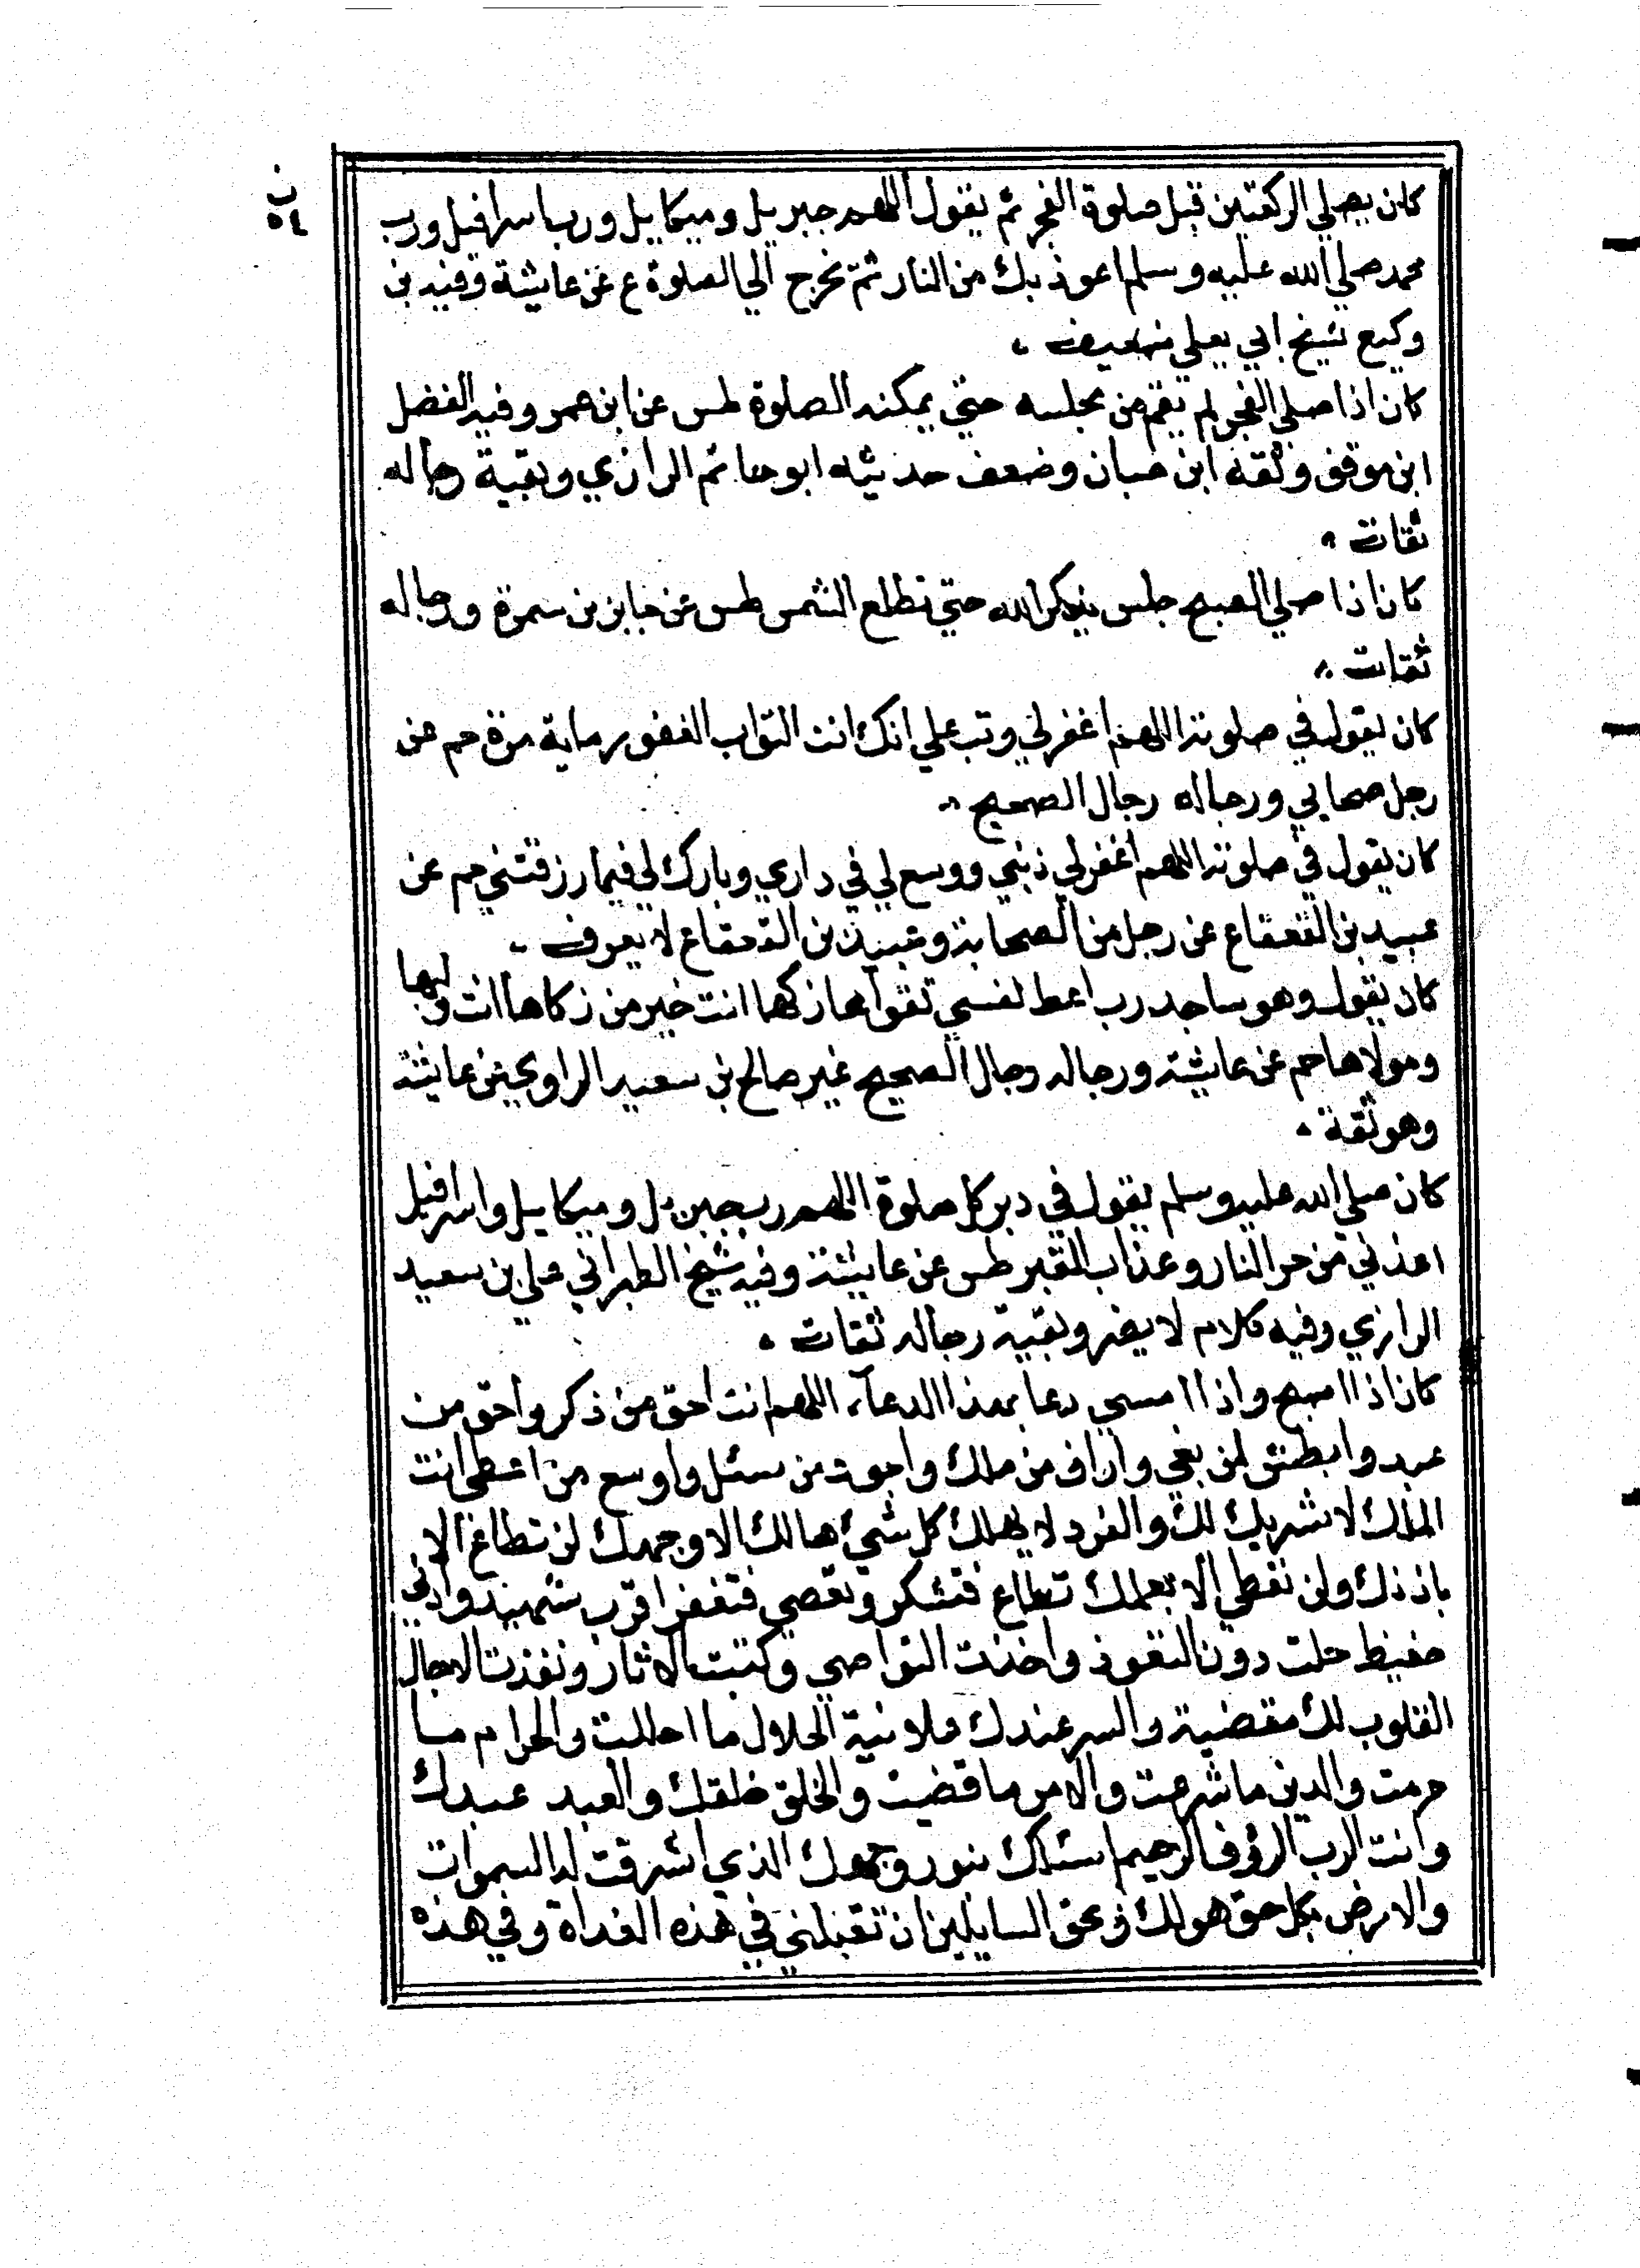 ب
٥٤
كان يصلي الركعتين قبل صلوة الفجر ثم يقول اللهم جبريل وميكايل ورب اسرافيل ورب
محمد صلي الله عليه وسلم اعوذ بك من النار ثم يخرج الي الصلوة ع عن عايشة وفيه بن
وكيع شيخ ابي يعلي ضعيف
كان اذا صلي الفجر لم يقم من مجلسه حتي يمكنه الصلوة طس عن ابن عمر وفيه الفضل
ابن موفق وثقه ابن حبان وضعف حديثه ابو حاتم الرازي وبقية رجاله
ثقات
كان اذا صلي الصبح جلس يذكر الله حتي تطلع الشمس طس عن جابر بن سمرة ورجاله
ثقات
كان يقول في صلوته اللهم اغفر لي وتب علي انك انت التواب الغفور ماية مرة حم عن
رجل صحابي ورجاله رجال الصحيح
كان يقول في صلوته اللهم اغفر لي ذنبي ووسع لي في داري وبارك لي فيما رزقتني حم عن
عبيد بن القعقاع عن رجل من الصحابة وعبيد بن القعقاع لا يعرف
كان يقول وهو ساجد رب اعط نفسي تقواها زكها انت خير من زكاها انت وليها
ومولاها حم عن عايشة ورجاله رجال الصحيح غير صالح بن سعيد الراوي عن عايشة
وهو ثقة
كان صلي الله عليه وسلم يقول في دبر كل صلوة اللهم رب جبريل وميكايل واسرافيل
اعذني من حر النار وعذاب القبر طس عن عايشة وفيه شيخ الطبراني علي بن سعيد
الرازي وفيه كلام لا يضر وبقية رجاله ثقات
كان اذا اصبح واذا امسي دعا بهذا الدعآء اللهم انت احق من ذكر واحق من
عبد وابطش لمن بغي واراف من ملك واجود من سئل واوسع من اعطي انت
الملك لا شريك لك والفرد لا يهلك كل شيء هالك الا وجهك لن تطاع الا
باذنك ولن تعطي الا بعلمك تطاع فتشكر وتعصي فتغفر اقرب شهيد وادني
حفيظ حلت دون النفوذ واخذت النواصي وكتبت الاثار ونفذت الاجال
القلوب لك مفضية والسر عندك علانية الحلال ما احللت والحرام ما
حرمت والدين ما شرعت والامر ما قضيت والخلق خلقك والعبد عبدك
وانت الرب الرؤف الرحيم اسئلك بنور وجهك الذي اشرقت له السموات
والارض بكل حق هو لك وبحق السايلين ان تقبلني في هذه الغداة وفي هذه